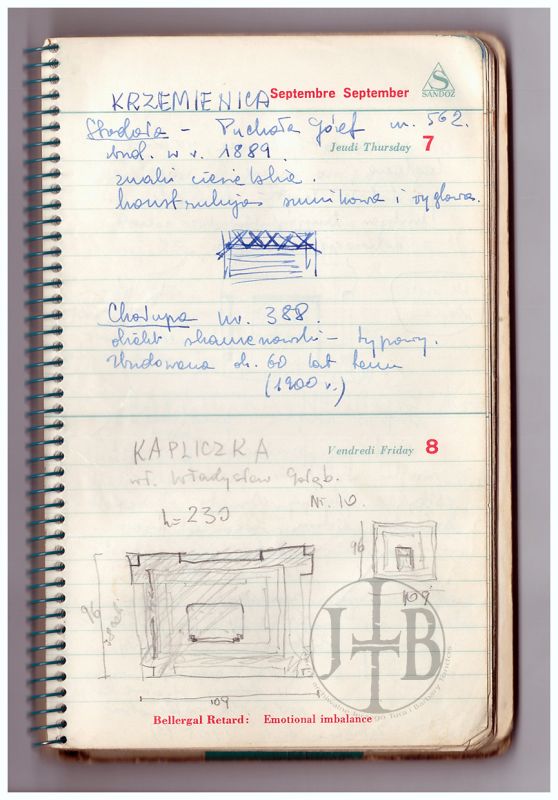 KRZEMIENICA
Septembre September
SANDOZ
Stodoła – Puchała Józef nr. 562.
Jeudi Thursday 7
bud. w r. 1889.
znaki ciesielskie.
konstrukcja sumikowa i węgłowa.
Chałupa nr. 388.
obiekt typowy.
Zbudowana ok. 60 lat temu
(1900 r.)
Vendredi Friday 8
KAPLICZKA
wł. Władysław Gołąb.
Nr. 10.
h=230
96
109
96
109
JTB
Bellergal Retard: Emotional imbalance